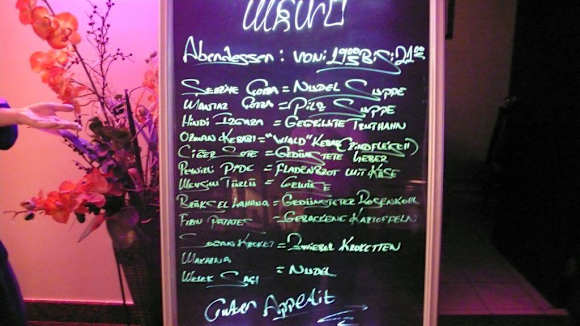 Menü
Abendessen: von: 19⁰⁰ Bis: 21⁰⁰
Sebzeze Çorba = Nudel Suppe
Mantar Çorba = Pilz Suppe
Hindi Izgara = Gegrillte Truthahn
Orman Kebabi = "Wald" Kebab (Rindfleisch)
Ciğer Sote = Gedünstete Leber
Peynirli Pide = Fladenbrot mit Käse
Mevsim Türlü = Gemüse
Brüksel Lahana = Gedünsteter Rosenkohl
Firin Patates = Gebackene Kartoffeln
Kroket = Kroketten
Makarna
= Nudel
Guten Appetit